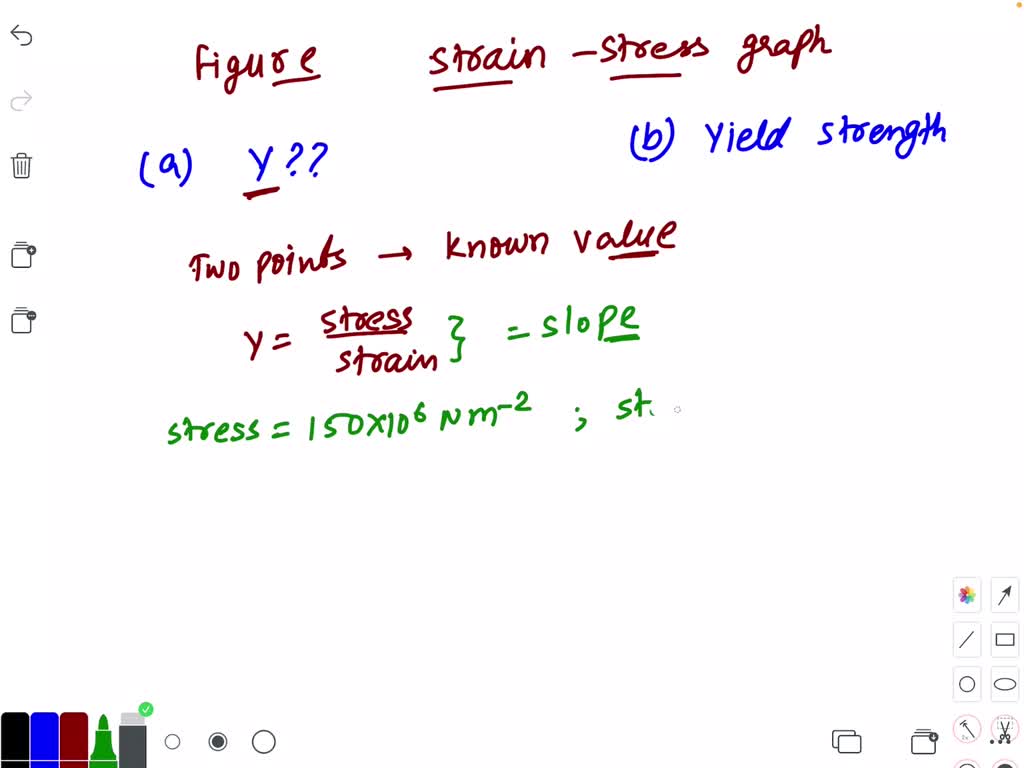 Figure strain - stress graph
(a) Y ?? (b) Yield strength
Two points → known value
Y = stress/strain } = slope
stress = 150×10⁶ Nm⁻² ; st